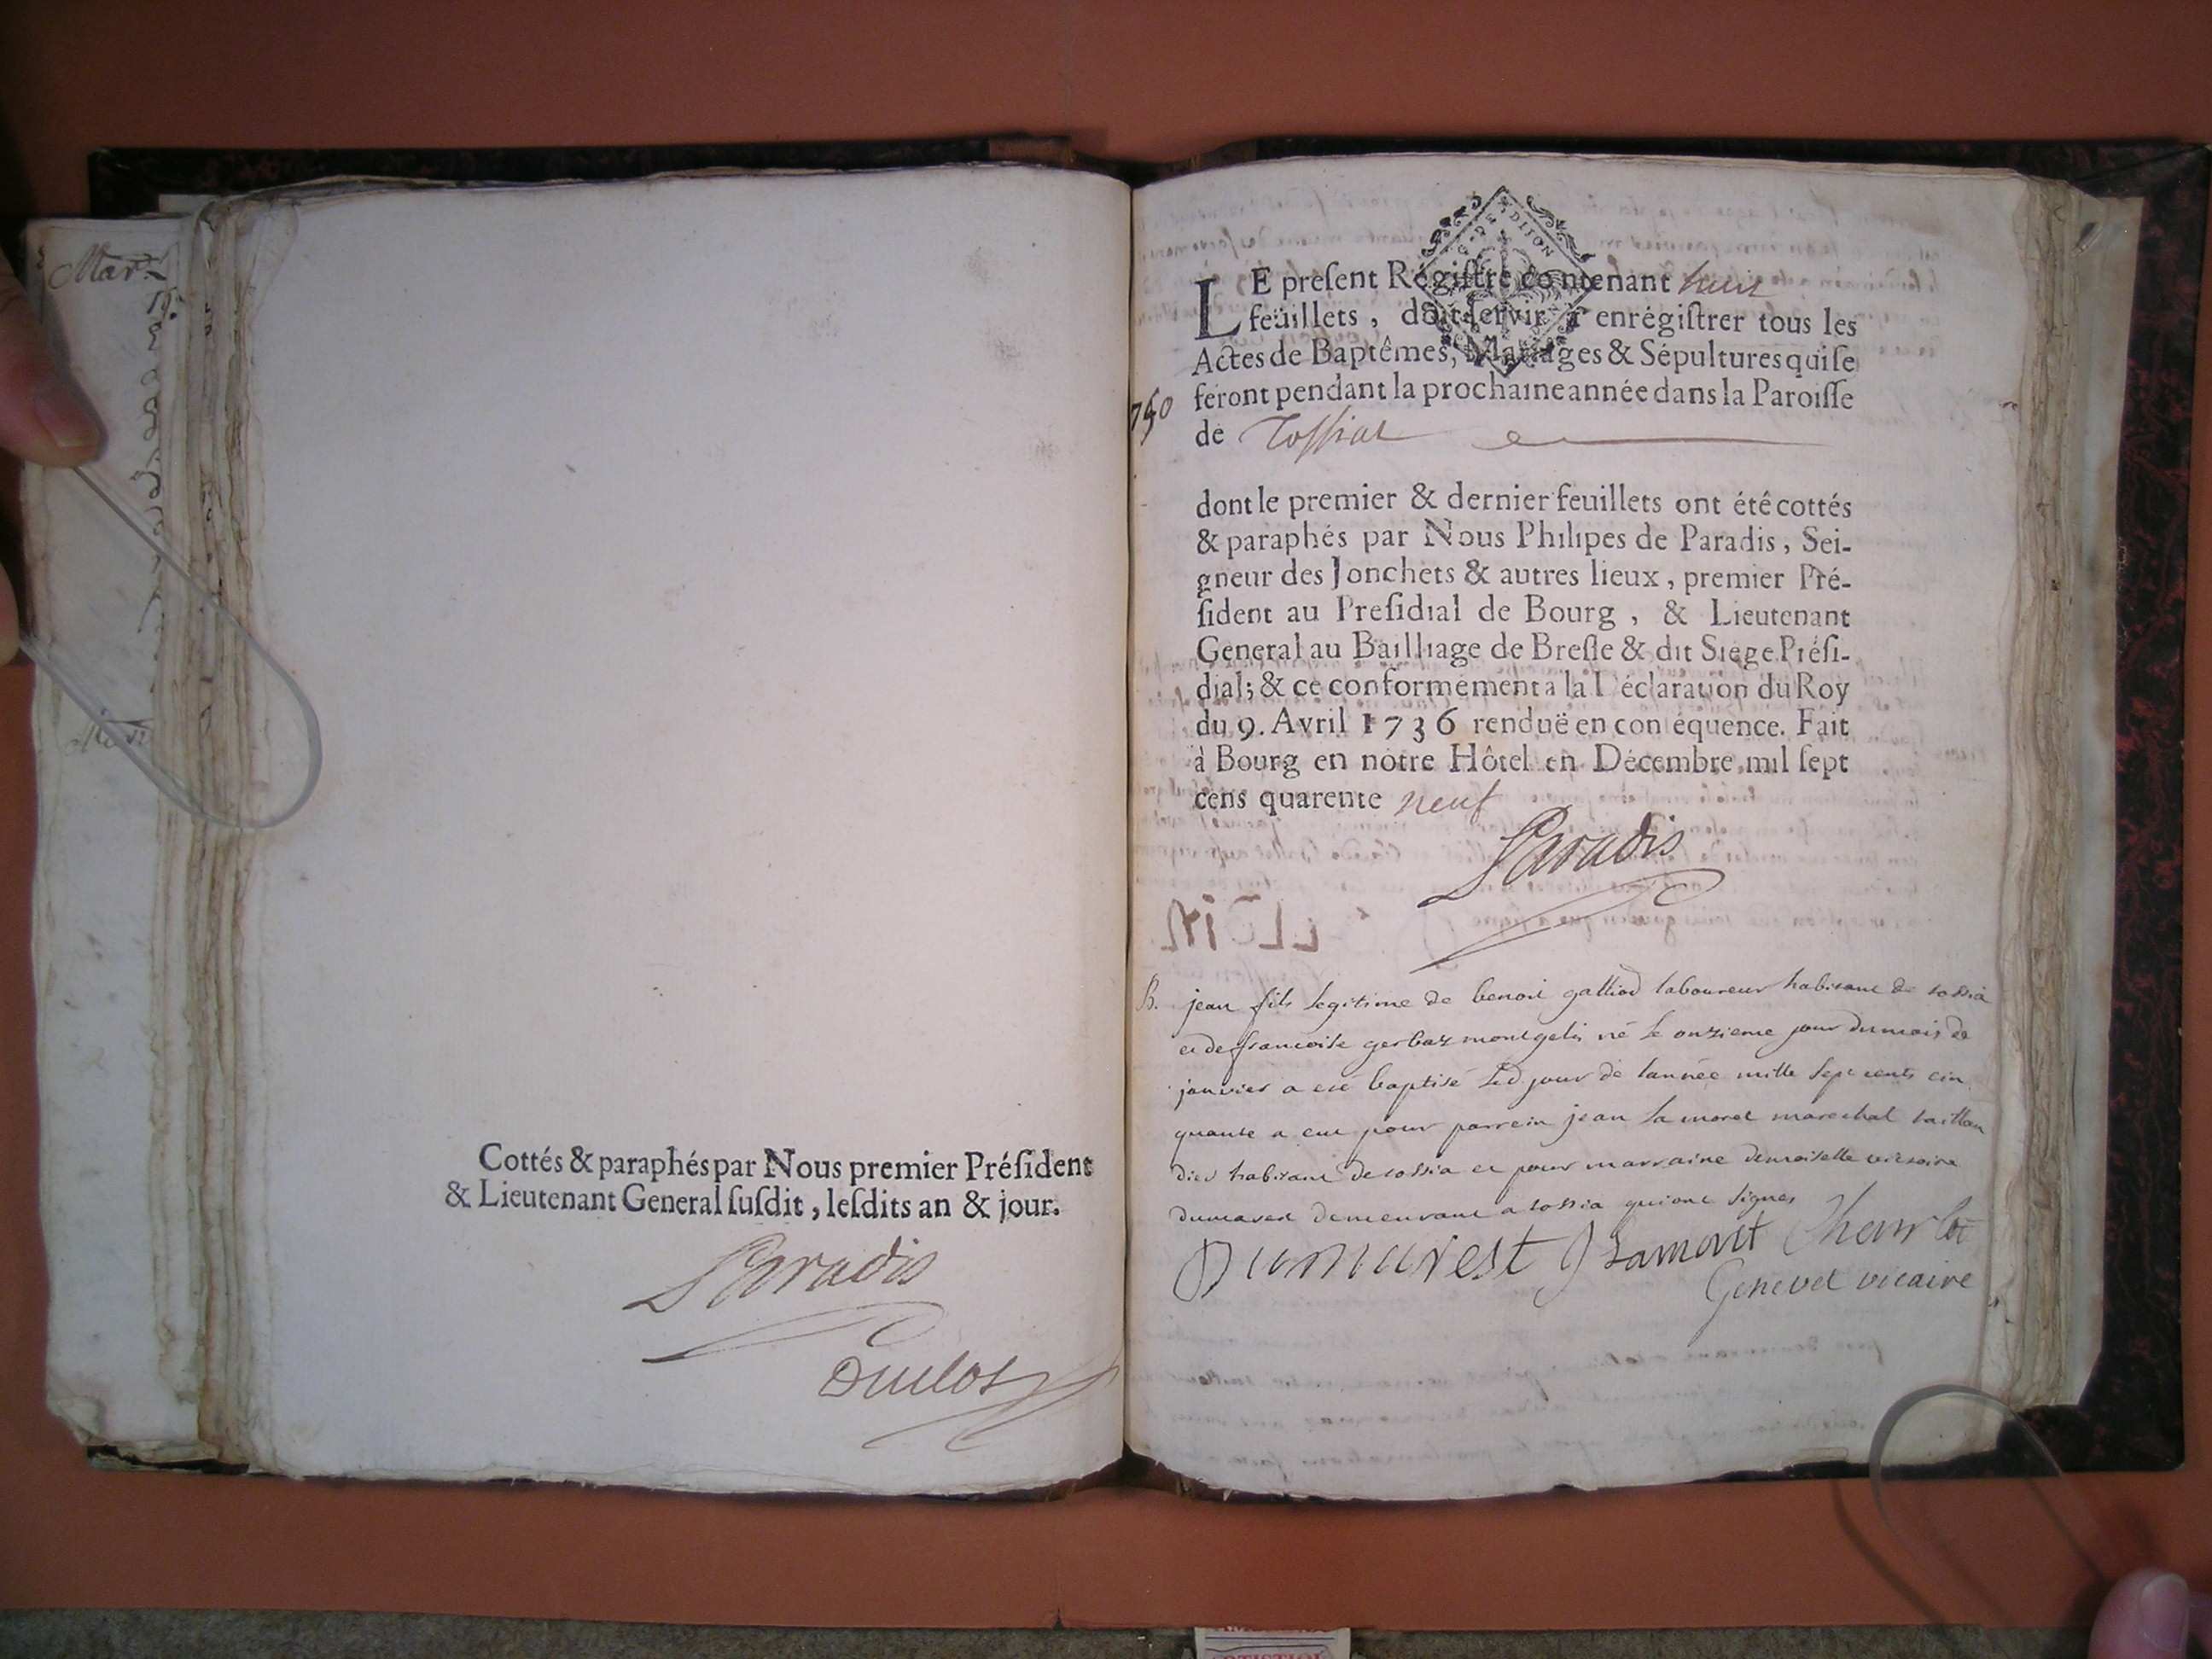 Mar.
Cottés & paraphés par Nous premier Préſident
& Lieutenant General ſuſdit, leſdits an & jour.
Paradis
Duclos
DIJON
LE preſent Régiſtre contenant huit
feüillets, doit ſervir à enrégiſtrer tous les
Actes de Baptêmes, Mariages & Sépultures qui ſe
feront pendant la prochaine année dans la Paroiſſe
750
de Toſſiat
dont le premier & dernier feuillets ont été cottés
& paraphés par Nous Philipes de Paradis, Sei-
gneur des Jonchets & autres lieux, premier Pré-
ſident au Preſidial de Bourg, & Lieutenant
General au Bailliage de Breſſe & dit Siége Préſi-
dial; & ce conformément a la Déclaration du Roy
du 9. Avril 1736 renduë en conſéquence. Fait
à Bourg en notre Hôtel en Décembre mil ſept
cens quarente neuf
Paradis
B. jean fils legitime de benoit galliod laboureur habitant de tossia
et de francoise gerbaz montgelin né le onzieme jour du mois de
janvier a eté baptisé led. jour de lannée mille sept cents cin
quante a eut pour parrein jean la moret marechal taillan
dier habitant de tossia et pour marraine demoiselle victoire
dumarest demeurant a tossia qui ont signes
Dumarest J Lamorét Charlot
Genevet vicaire